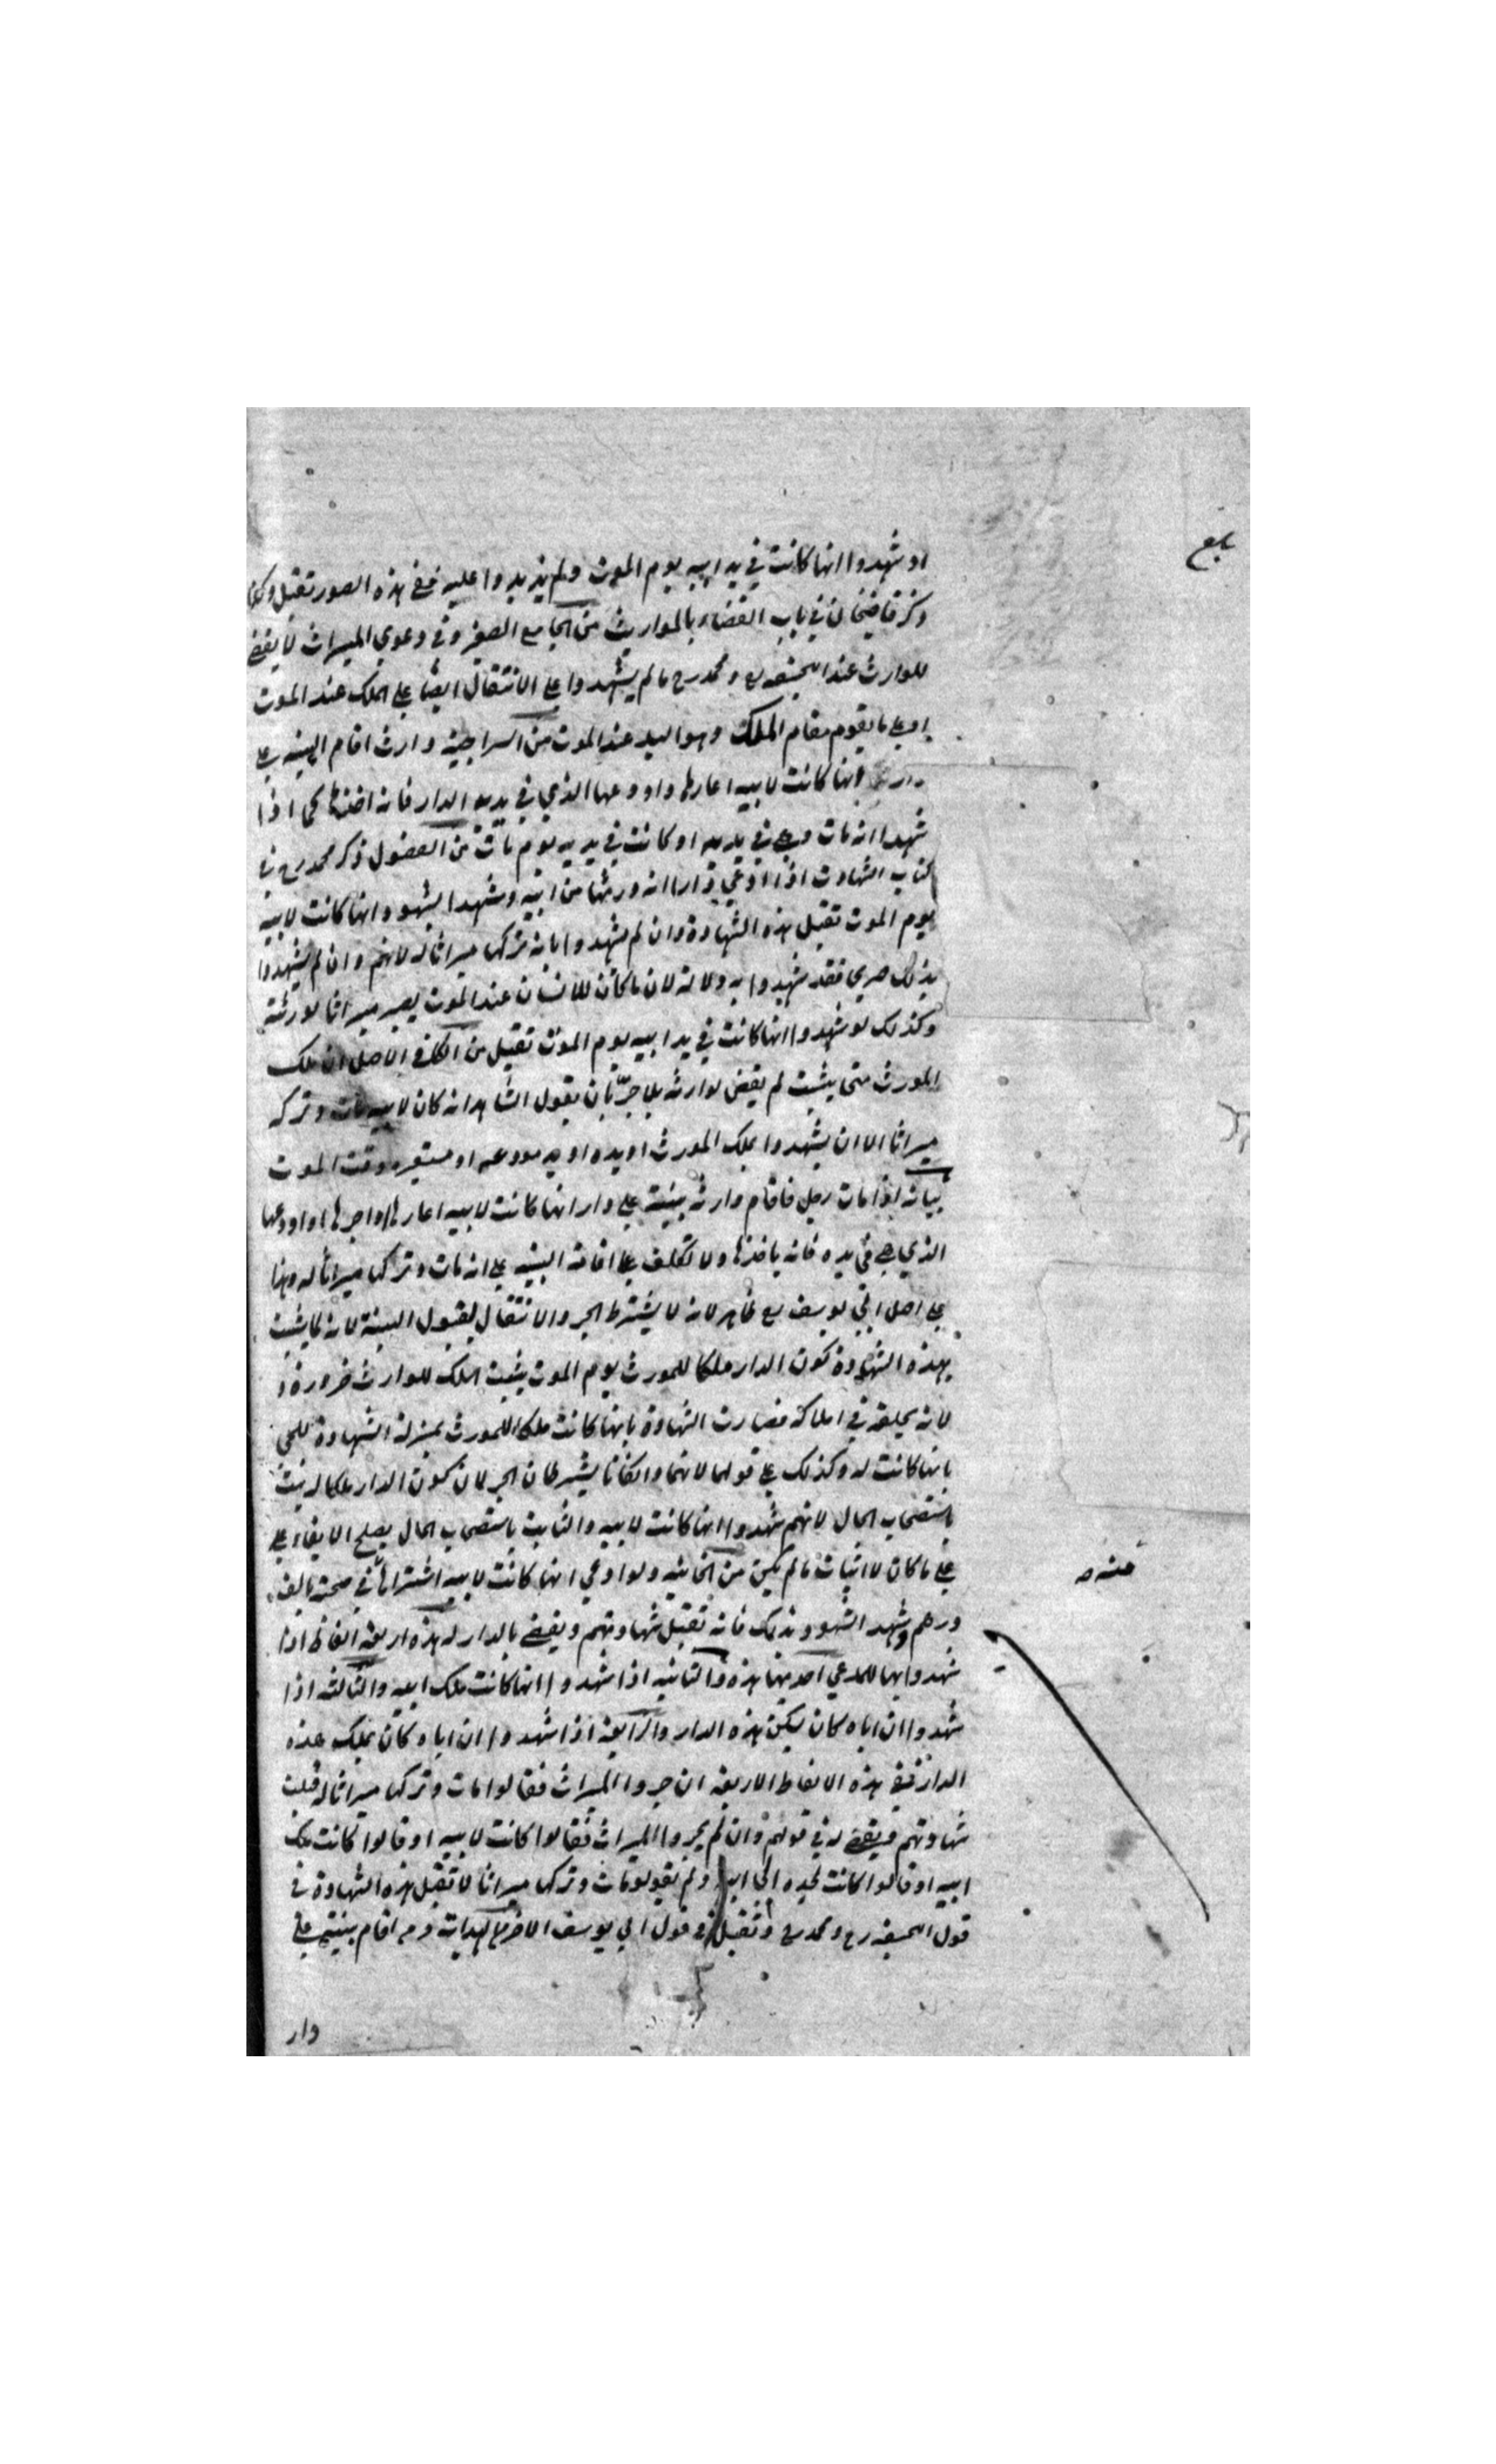 بلغ
او شهدوا انها كانت في يد ابيه يوم الموت ولم يزيدوا عليه ففي هذه الصور تقبل وكذا
ذكر قاضيخان في باب القضاء بالمواريث من الجامع الصغير وفي دعوي الميراث لا يقضي
للوارث عند ابيحنيفه رح و محمد رح ما لم يشهدوا علي الانتقال ايضا علي الملك عند الموت
او علي ما يقوم مقام الملك وهو اليد عند الموت من السراجية وارث اقام البينه علي
دار انها كانت لابيه اعارها واودعها الذي في يديه الدار فانه اخذها كما اذا
شهدا انه مات وهي في يديه او كانت في يديه يوم مات من الفصول ذكر محمد رح في
كتاب الشهادت اذا ادعي دارا انه ورثها من ابيه وشهد الشهود انها كانت لابيه
يوم الموت تقبل هذه الشهادة وان لم يشهدوا بانه تركها ميراثا له لانهم وان لم يشهدوا
بذلك صريحا فقد شهدوا به دلالة لان ما كان للانسان عند الموت يصير ميراثا لورثته
وكذلك لو شهدوا انها كانت في يد ابيه يوم الموت تقبل من الكافي الاصل ان ملك
المورث متي يثبت لم يقض لوارثه بلا جر بان يقول الشاهد انه كان لابيه مات وتركه
ميراثا الا ان يشهدوا بملك المورث او يده او يد مودعه او مستعيره وقت الموت
بيانه اذا مات رجل فاقام وارثه بينة علي دار انها كانت لابيه اعارها او اجرها او اودعها
الذي هي في يده فانه ياخذها ولا تكلف علي اقامة البينه علي انه مات وتركها ميراثا له وهذا
علي اصل ابي يوسف رح ظاهر لانه لا يشترط الجر والانتقال لقبول البينة لانه لما يثبت
بهذه الشهادة كون الدار ملكا للمورث يوم الموت يثبت الملك للوارث ضرورة
لانه يخلفه في املاكه فصارت الشهادة بانها كانت ملكا للمورث بمنزلة الشهادة للحي
بانها كانت له وكذلك علي قولهما لانهما وان كانا يشترطان الجر لان كون الدار ملكا له يثبت
باستصحاب الحال لانهم شهدوا انها كانت لابيه والثابت باستصحاب الحال يصلح لابقاء علي
علي ما كان لا اثبات ما لم يكن من الخانيه ولو ادعي انها كانت لابيه اشتراها في صحته بالف
درهم وشهد الشهود بذلك فانه تقبل شهادتهم ويقضي بالدار له هذه اربعة الفاظ اذا
شهدوا بها للمدعي احديها هذه والثانيه اذا شهدوا انها كانت ملك ابيه والثالثه اذا
شهدوا ان اباه كان يسكن هذه الدار والرابعه اذا شهدوا ان اباه كان يملك هذه
الدار ففي هذه الالفاظ الاربعه ان جروا الميراث فقالوا مات وتركها ميراثا له قبلت
شهادتهم ويقضي له في قولهم وان لم يجروا الميراث فقالوا كانت لابيه او قالوا كانت ملك
ابيه او قالوا كانت لجده ابي ابيه ولم يقولوا مات وتركها ميراثا لا تقبل هذه الشهادة في
قول ابيحنيفه رح و محمد رح وتقبل في قول ابي يوسف الاخر الهدايه ومن اقام بينة علي
دار